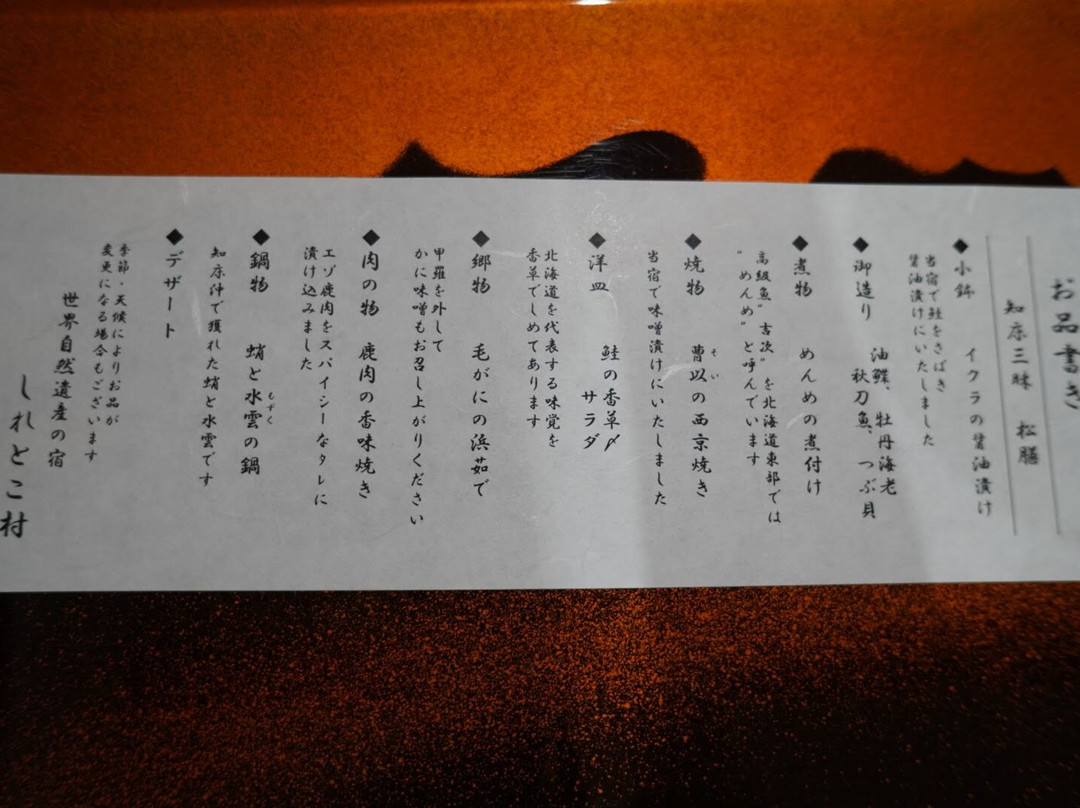 お品書き
知床三昧　松膳
◆小鉢　イクラの醤油漬け
当宿で鮭をさばき
醤油漬けにいたしました
◆御造り　油鰈、牡丹海老
秋刀魚、つぶ貝
◆煮物　めんめの煮付け
高級魚〝吉次〟を北海道東部では
〝めんめ〟と呼んでいます
◆焼物　曹以の西京焼き
そい
当宿で味噌漬けにいたしました
◆洋皿　鮭の香草〆
サラダ
北海道を代表する味覚を
香草でしめてあります
◆郷物　毛がにの浜茹で
甲羅を外して
かに味噌もお召し上がりください
◆肉の物　鹿肉の香味焼き
エゾ鹿肉をスパイシーなタレに
漬け込みました
◆鍋物　蛸と水雲の鍋
もずく
知床沖で獲れた蛸と水雲です
◆デザート
季節・天候によりお品が
変更になる場合もございます
世界自然遺産の宿
しれとこ村